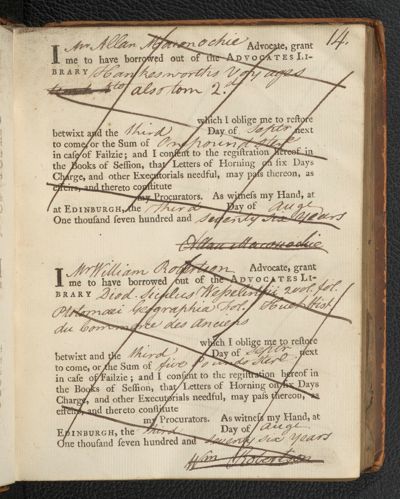 14.
I Mr Allan Maconochie Advocate, grant
me to have borrowed out of the ADVOCATES LI-
BRARY Hawkesworths Voyages
4to also tom 2d
which I oblige me to reſtore
betwixt and the third Day of Septr next
to come, or the Sum of One pound Ster
in caſe of Failzie; and I conſent to the regiſtration hereof in
the Books of Seſſion, that Letters of Horning on ſix Days
Charge, and other Executorials needful, may paſs thereon, as
effeirs, and thereto conſtitute
my Procurators. As witneſs my Hand, at
at EDINBURGH, the third Day of Augt
One thouſand ſeven hundred and seventy six years
Allan Maconochie
I Mr William Robertson Advocate, grant
me to have borrowed out of the ADVOCATES LI-
BRARY Diod. Siculus Wesselingii 2 vol. fol.
Ptolomaei Geographia fol. Huet Hist
du Commerce des anciens
which I oblige me to reſtore
betwixt and the third Day of Septr next
to come, or the Sum of five pounds Sterl
in caſe of Failzie; and I conſent to the regiſtration hereof in
the Books of Seſſion, that Letters of Horning on ſix Days
Charge, and other Executorials needful, may paſs thereon, as
effeirs, and thereto conſtitute
my Procurators. As witneſs my Hand, at
EDINBURGH, the third Day of Augt
One thouſand ſeven hundred and seventy six years
Wm Robertson